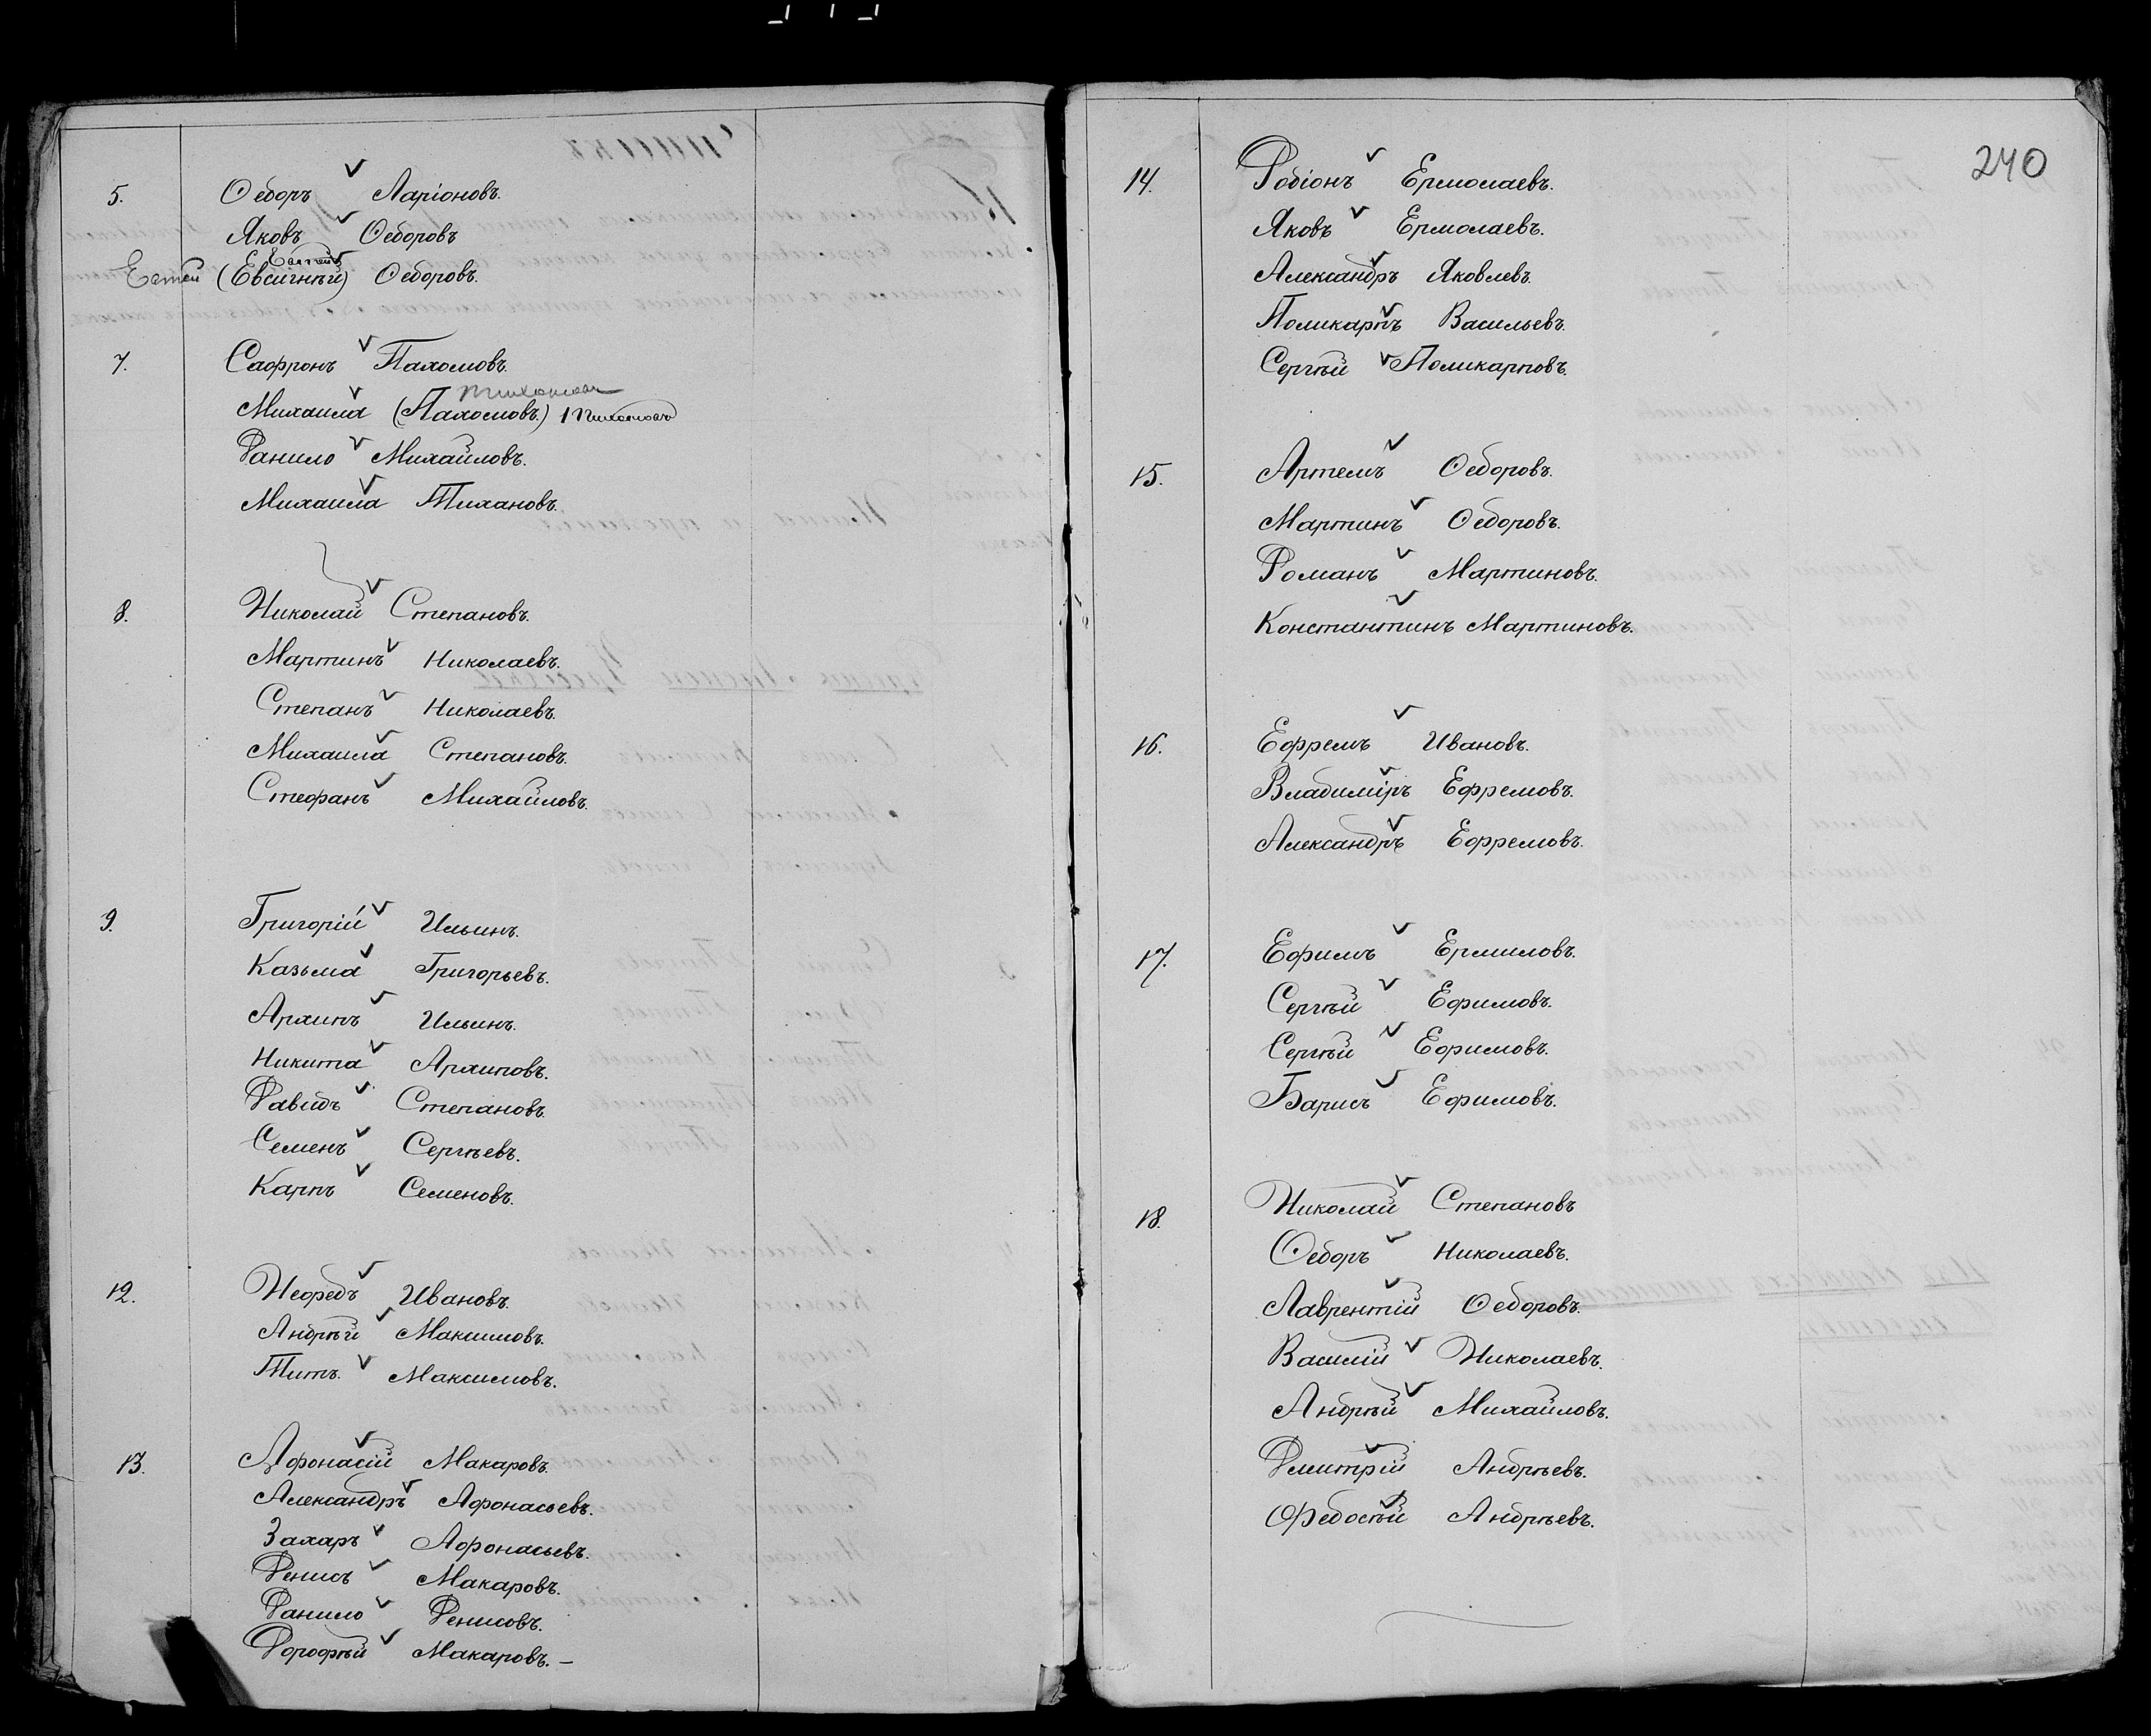 5. Ѳедоръ Ларіоновъ.
Яковъ Ѳедоровъ
Евтей (Евсигнѣй) Ѳедоровъ.
7. Сафронъ Пахомовъ.
Тихоновъ
Михаила (Пахомовъ.) Тихоновъ
Данило Михайловъ.
Михаила Тихановъ.
8. Николай Степановъ.
Мартинъ Николаевъ.
Степанъ Николаевъ.
Михаила Степановъ.
Стефанъ Михайловъ.
9. Григорій Ильинъ.
Казьма Григорьевъ.
Архипъ Ильинъ.
Никита Архиповъ.
Давидъ Степановъ.
Семенъ Сергѣевъ.
Карпъ Семеновъ.
12. Нефедъ Ивановъ.
Андрѣй Максимовъ.
Титъ. Максимовъ.
13. Афонасій Макаровъ.
Александръ Афонасьевъ.
Захаръ Афонасьевъ.
Денисъ Макаровъ.
Данило Денисовъ.
Дорофѣй Макаровъ. –
240
14. Родіонъ Ермолаевъ.
Яковъ Ермолаевъ.
Александръ Яковлевъ.
Поликарпъ Васильевъ.
Сергѣй Поликарповъ.
15. Артемъ Ѳедоровъ.
Мартинъ Ѳедоровъ.
Романъ Мартиновъ.
Константинъ Мартиновъ.
16. Ефремъ Ивановъ.
Владиміръ Ефремовъ.
Александръ Ефремовъ.
17. Ефимъ Ермиловъ.
Сергѣй Ефимовъ.
Сергѣй Ефимовъ.
Барисъ Ефимовъ.
18. Николай Степановъ
Ѳедоръ Николаевъ.
Лаврентій Ѳедоровъ.
Василій Николаевъ.
Андрѣй Михайловъ.
Дмитрій Андрѣевъ.
Ѳедосѣй Андрѣевъ.